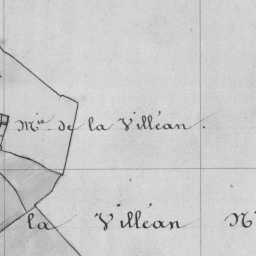 Mie de la Villéan.
la Villéan N